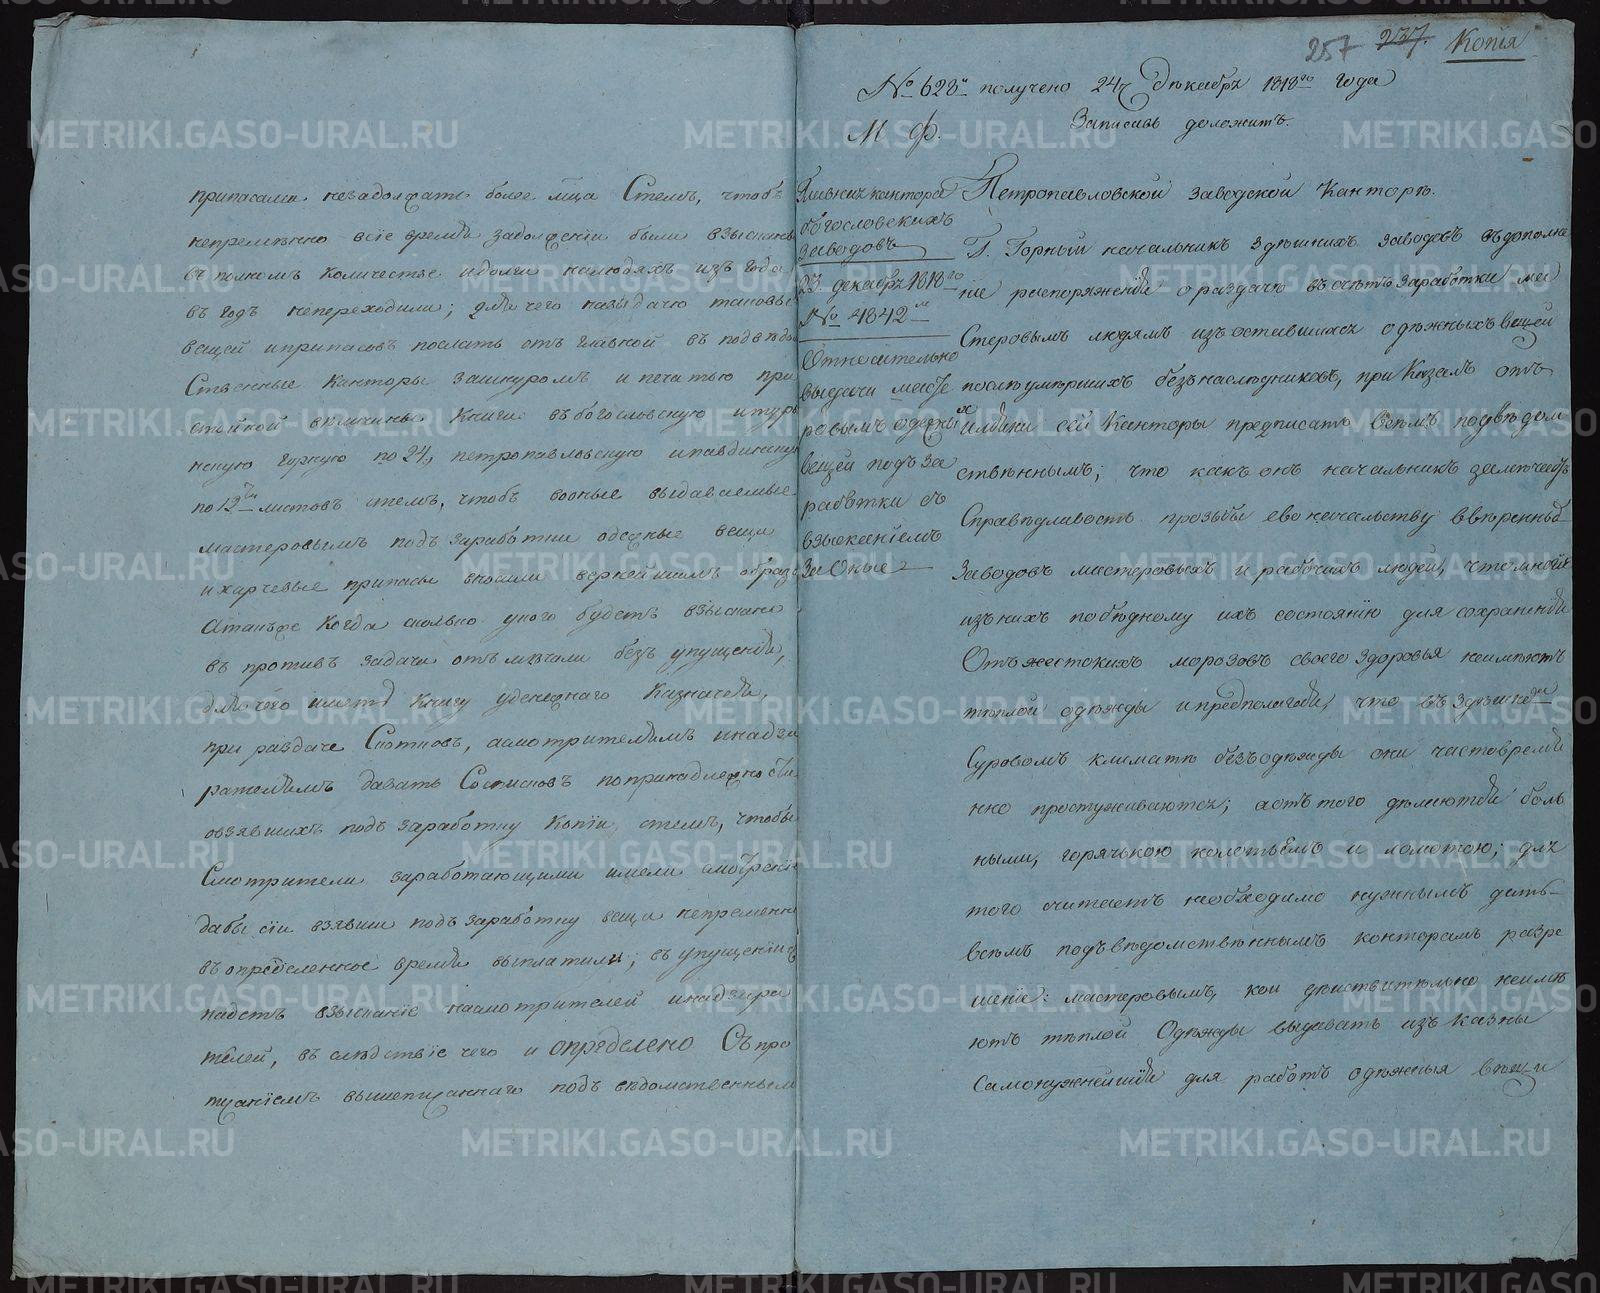 припасами незадолжать более мца Стемъ, чтобъ
непременно всіе время задолженіи были взысканы
въ полномъ количестве идолги налюдяхъ изъ года
въ годъ непереходили; для чего навыдачю таковыхъ
вещей иприпасовъ послать отъ главной въ подведом
Ственные Канторы зашнуромъ и печатью при
стойной величины Книги въ богословскую итурь
инскую горную по 24, петропавловскую ипавдинскую
по 12ть листовъ стемъ, чтобъ вооные выдаваемые
мастеровымъ подъ заработки одежные вещи
ихарчевые припасы вносили вернейшимъ образомъ
Атакъже Когда сколько укого будетъ взыскано
въ противъ задачи отъмечали безъ упущенія,
для чего иметь Книгу уденежнаго Казначея,
при раздаче Скотновъ, асмотрителямъ инадзи
рателямъ давать Сосписковъ попринадлежности
овзявшихъ подъ заработку Копіи, стемъ, чтобы
Смотрители заработающими имели смотреніе
дабы сіи взявши подъ заработку вещи непременно
въ определенное время выплатили; въ упущеніи ж
падетъ взысканіе насмотрителей инадзира
телей, въ следствіе чего и определено Съ про
писаніемъ вышеписаннаго подъ ведомственнымъ
257 237. Копія
№ 628й получено 24ч Декабря 1818го года
М. Ф. Записавъ доложить.
Главная кантора
богословскихъ
заводовъ
23. декабря 1818го
№ 4842м
Относительно
выдачи масте
ровымъ одежныхъ
вещей подъ за
работки съ
взысканіемъ
За Оные
Петропавловской заводской Канторѣ.
Г. Горный начальникъ здѣшнихъ заводовъ въдополне
ніе распоряженія ораздачѣ въсчетъ заработки ма
Стеровымъ людямъ изъоставшихся одѣжныхъ вещей
послѣумѣршихъ безънаслѣдниковъ, приказалъ отъ
имяни сей Канторы предписать всѣмъ подвѣдом
ствѣннымъ; что какъ онъ начальникъ замѣчаетъ
Справѣдливость прозьбы ево начальству ввѣренныхъ
Заводовъ мастеровыхъ и рабочихъ людей, чтомногіе
изъ нихъ по бѣдному ихъ состоянію для сохраненія
Отъ жестокихъ морозовъ своего здоровья неимѣютъ
тѣплой одѣжды ипредполагая, что въздѣшнемъ
Суровомъ климатѣ безъодѣжды они частовремѣ
нно простуживаются; аотътого дѣлаются боль
ными, горячькою колотьемъ и ломотою; для
того считаетъ необходимо нужнымъ дать
всѣмъ подъвѣдомствѣннымъ конторамъ разре
шеніе: мастеровымъ, кои дѣйствитѣльно неимѣ
ютъ тѣплой Одѣжды выдавать изъ казны
Самонужнейшія для работъ одѣжныя вѣщи